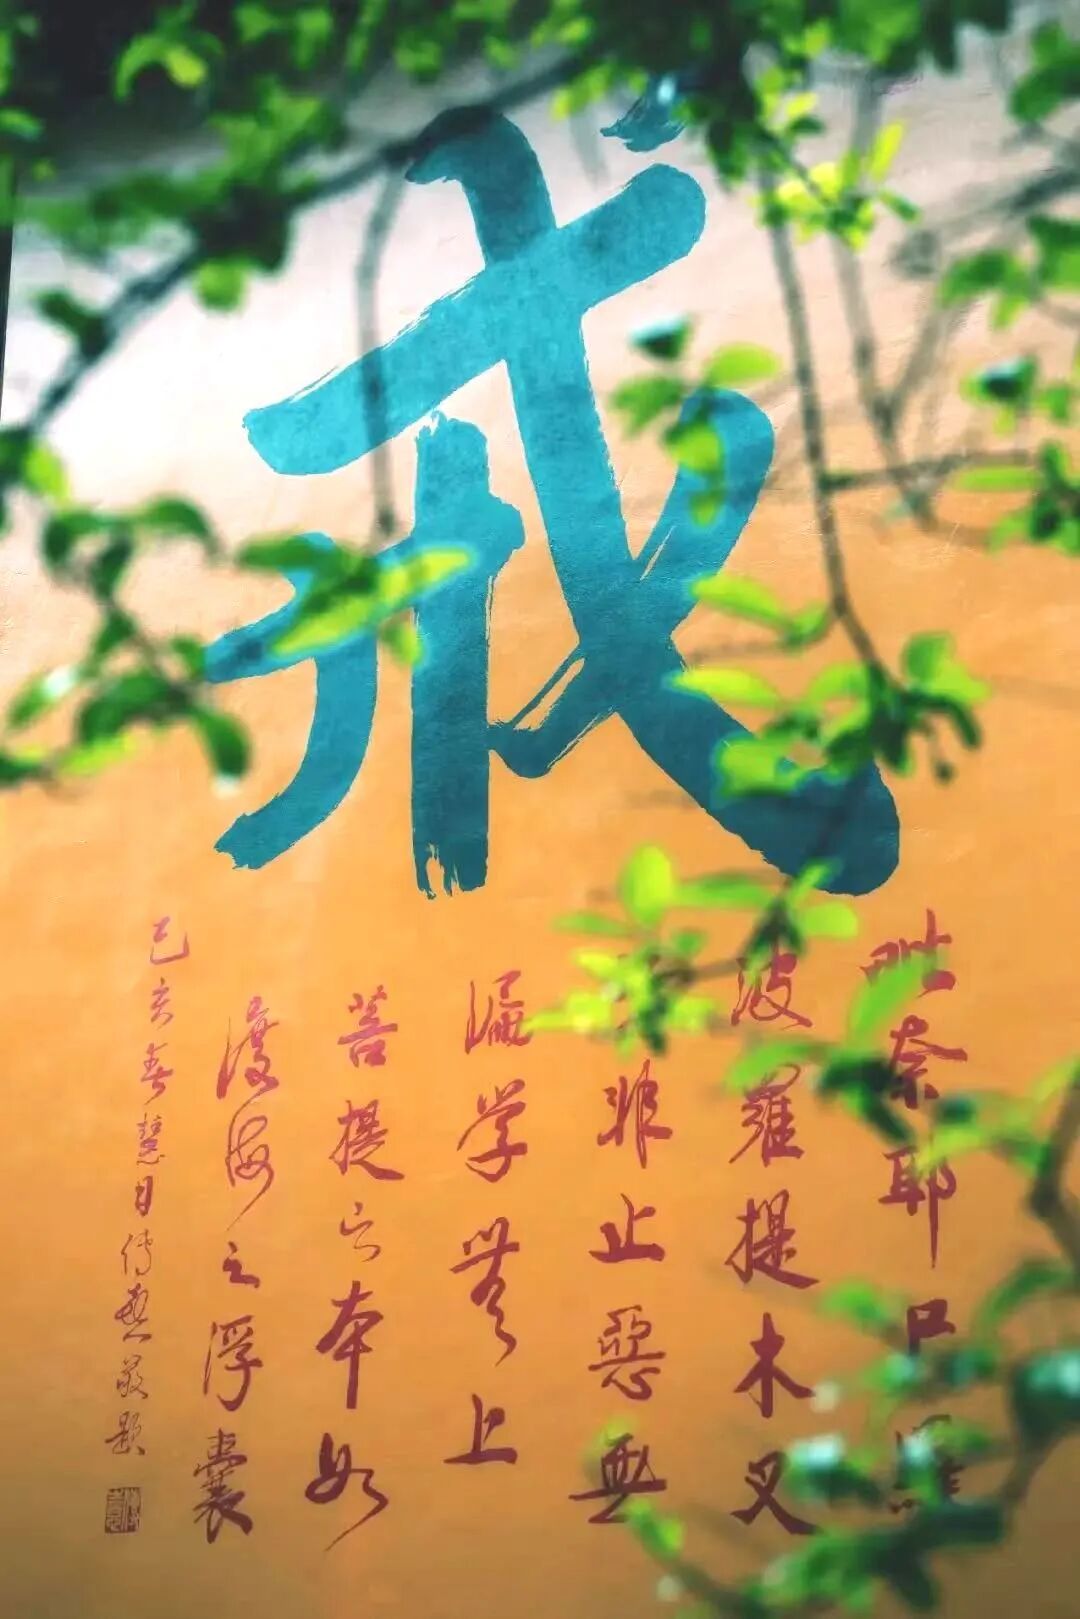 戒
毗奈耶尸羅
波羅提木叉
非止惡無
漏学無上
菩提之本如
渡海之浮囊
己亥春慧日传熹敬题